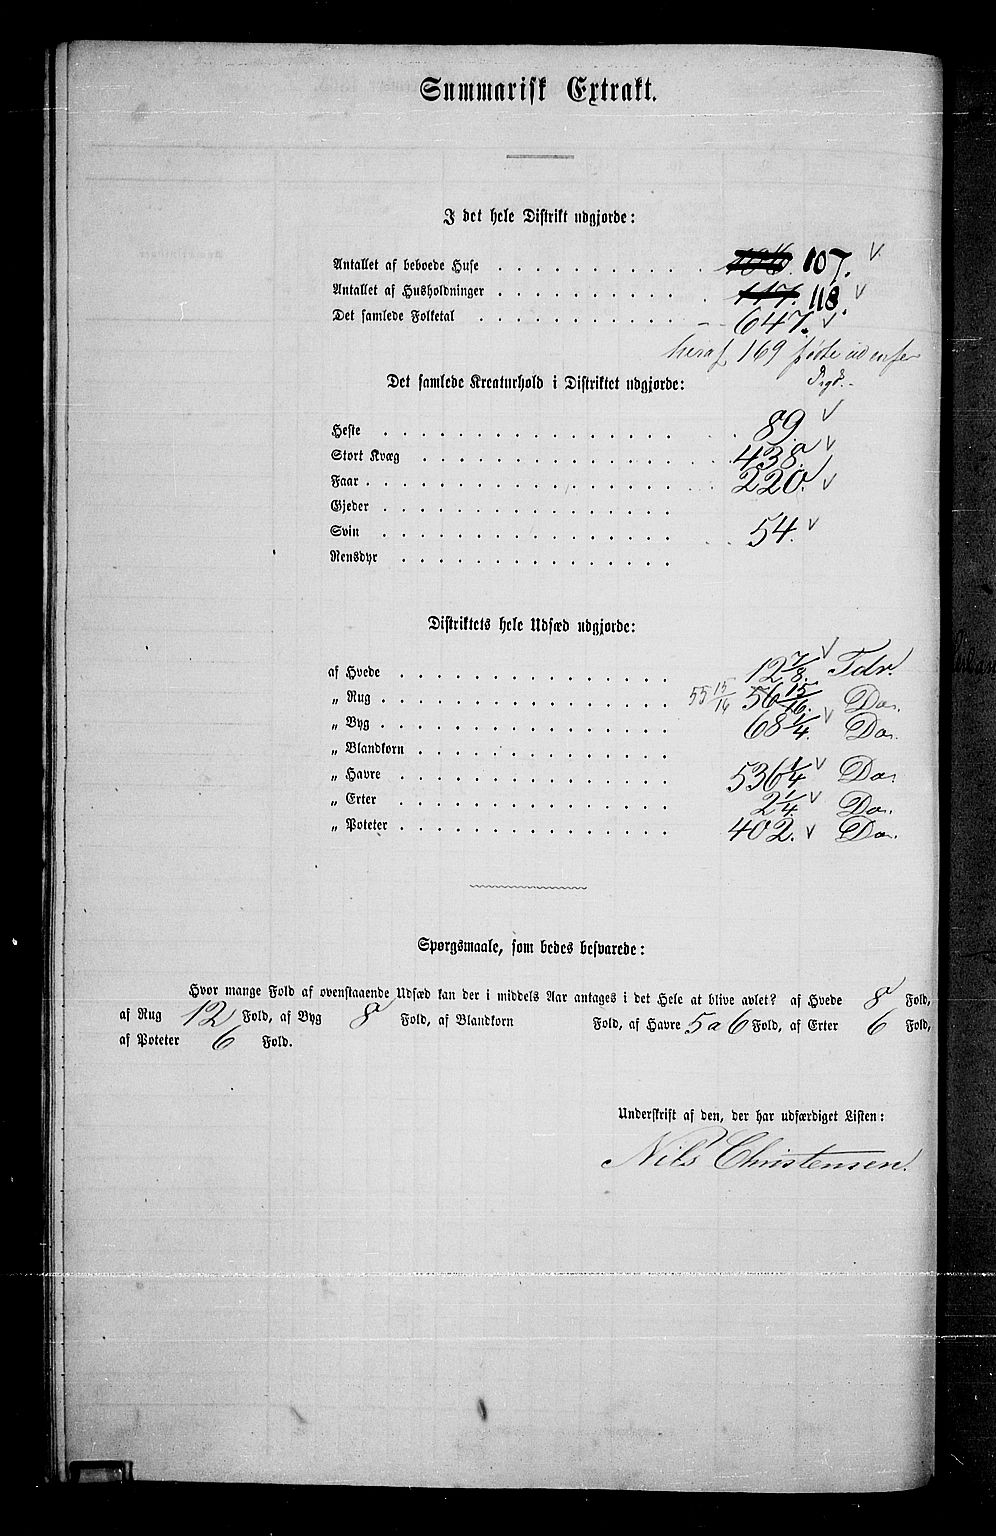 Summarisk Extrakt.
I det hele Distrikt udgjorde:
Antallet af beboede Huse . . . 106. 107.
Antallet af Husholdninger . . . 117. 118.
Det samlede Folketal . . . 647.
heraf 169 fødte udenfor
Det samlede Kreaturhold i Distriktet udgjorde:
Heste . . . 89.
Stort Kvæg . . . 438.
Faar . . . 220.
Gjeder . . .
Svin . . . 54.
Rensdyr . . .
Distriktets hele Udsæd udgjorde:
af Hvede . . . 12 7/8. Tdr.
„ Rug . . . 55 15/16 56 15/16. Do.
„ Byg . . . 68 1/4. Do.
„ Blandkorn . . .
„ Havre . . . 536 1/4 Do.
„ Erter . . . 2 1/4. Do.
„ Poteter . . . 402. Do.
Spørgsmaale, som bedes besvarede:
Hvor mange Fold af ovenstaaende Udsæd kan der i middels Aar antages i det Hele at blive avlet? af Hvede 8 Fold,
af Rug 12 Fold, af Byg 8 Fold, af Blandkorn Fold, af Havre 5 a 6 Fold, af Erter 6 Fold,
af Poteter 6 Fold.
Underskrift af den, der har udfærdiget Listen:
Nils Christensen.